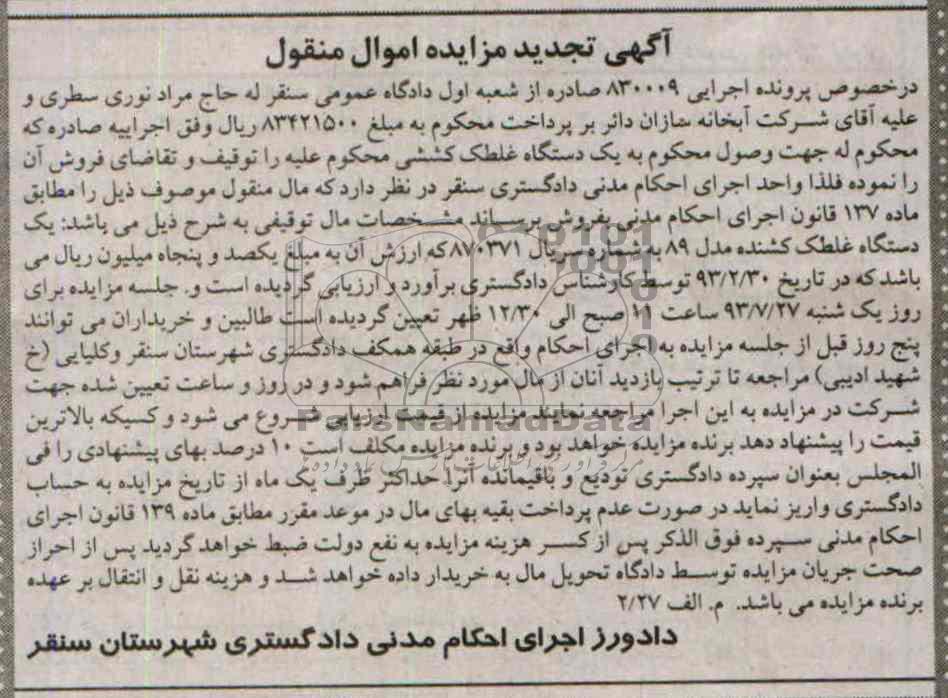 آگهی تجدید مزایده اموال منقول
درخصوص پرونده اجرایی ۸۳۰۰۰۹ صادره از شعبه اول دادگاه عمومی سنقر له حاج مراد نوری سطری و
علیه آقای شرکت آبخانه سازان دائر بر پرداخت محکوم به مبلغ ۸۳۴۲۱۵۰۰ ریال وفق اجراییه صادره که
محکوم له جهت وصول محکوم به یک دستگاه غلطک کششی محکوم علیه را توقیف و تقاضای فروش آن
را نموده فلذا واحد اجرای احکام مدنی دادگستری سنقر در نظر دارد که مال منقول موصوف ذیل را مطابق
ماده ۱۳۷ قانون اجرای احکام مدنی بفروش برساند مشخصات مال توقیفی به شرح ذیل می باشد: یک
دستگاه غلطک کشنده مدل ۸۹ به شماره سریال ۸۷۰۳۷۱ که ارزش آن به مبلغ یکصد و پنجاه میلیون ریال می
باشد که در تاریخ ۹۳/۲/۳۰ توسط کارشناس دادگستری برآورد و ارزیابی گردیده است و. جلسه مزایده برای
روز یک شنبه ۹۳/۷/۲۷ ساعت ۱۱ صبح الی ۱۲/۳۰ ظهر تعیین گردیده است طالبین و خریداران می توانند
پنج روز قبل از جلسه مزایده به اجرای احکام واقع در طبقه همکف دادگستری شهرستان سنقر وکلیایی (خ
شهید ادیبی) مراجعه تا ترتیب بازدید آنان از مال مورد نظر فراهم شود و در روز و ساعت تعیین شده جهت
شرکت در مزایده به این اجرا مراجعه نمایند مزایده از قیمت ارزیابی شروع می شود و کسیکه بالاترین
قیمت را پیشنهاد دهد برنده مزایده خواهد بود و برنده مزایده مکلف است ۱۰ درصد بهای پیشنهادی را فی
المجلس بعنوان سپرده دادگستری تودیع و باقیمانده آنرا حداکثر ظرف یک ماه از تاریخ مزایده به حساب
دادگستری واریز نماید در صورت عدم پرداخت بقیه بهای مال در موعد مقرر مطابق ماده ۱۳۹ قانون اجرای
احکام مدنی سپرده فوق الذکر پس از کسر هزینه مزایده به نفع دولت ضبط خواهد گردید پس از احراز
صحت جریان مزایده توسط دادگاه تحویل مال به خریدار داده خواهد شد و هزینه نقل و انتقال بر عهده
برنده مزایده می باشد. م. الف ۲/۲۷
دادورز اجرای احکام مدنی دادگستری شهرستان سنقر
ParsNamadData